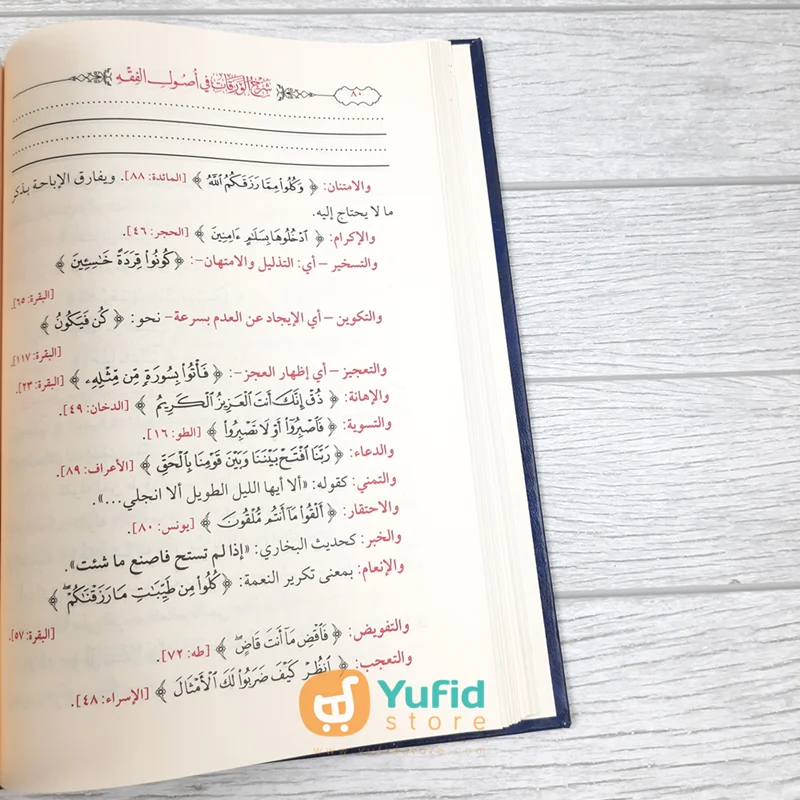 ٨٠
شرح الورقات في أصول الفقه
والامتنان: ﴿ وَكُلُوا۟ مِمَّا رَزَقَكُمُ ٱللَّهُ ﴾ [المائدة: ٨٨]. ويفارق الإباحة بذكر
ما لا يحتاج إليه.
والإكرام: ﴿ ٱدْخُلُوهَا بِسَلَٰمٍ ءَامِنِينَ ﴾ [الحجر: ٤٦].
والتسخير – أي: التذليل والامتهان–: ﴿ كُونُوا۟ قِرَدَةً خَٰسِـِٔينَ ﴾
[البقرة: ٦٥].
والتكوين – أي الإيجاد عن العدم بسرعة– نحو: ﴿ كُن فَيَكُونُ ﴾
[البقرة: ١١٧].
والتعجيز – أي إظهار العجز–: ﴿ فَأْتُوا۟ بِسُورَةٍ مِّن مِّثْلِهِۦ ﴾ [البقرة: ٢٣].
والإهانة: ﴿ ذُقْ إِنَّكَ أَنتَ ٱلْعَزِيزُ ٱلْكَرِيمُ ﴾ [الدخان: ٤٩].
والتسوية: ﴿ فَٱصْبِرُوٓا۟ أَوْ لَا تَصْبِرُوا۟ ﴾ [الطو: ١٦].
والدعاء: ﴿ رَبَّنَا ٱفْتَحْ بَيْنَنَا وَبَيْنَ قَوْمِنَا بِٱلْحَقِّ ﴾ [الأعراف: ٨٩].
والتمني: كقوله: «ألا أيها الليل الطويل ألا انجلي...».
والاحتقار: ﴿ أَلْقُوا۟ مَآ أَنتُم مُّلْقُونَ ﴾ [يونس: ٨٠].
والخبر: كحديث البخاري: «إذا لم تستح فاصنع ما شئت».
والإنعام: بمعنى تكرير النعمة: ﴿ كُلُوا۟ مِن طَيِّبَٰتِ مَا رَزَقْنَٰكُمْ ۖ ﴾
[البقرة: ٥٧].
والتفويض: ﴿ فَٱقْضِ مَآ أَنتَ قَاضٍ ۖ ﴾ [طه: ٧٢].
والتعجب: ﴿ ٱنظُرْ كَيْفَ ضَرَبُوا۟ لَكَ ٱلْأَمْثَالَ ﴾ [الإسراء: ٤٨].
Yufid
store
www.yufidstore.com